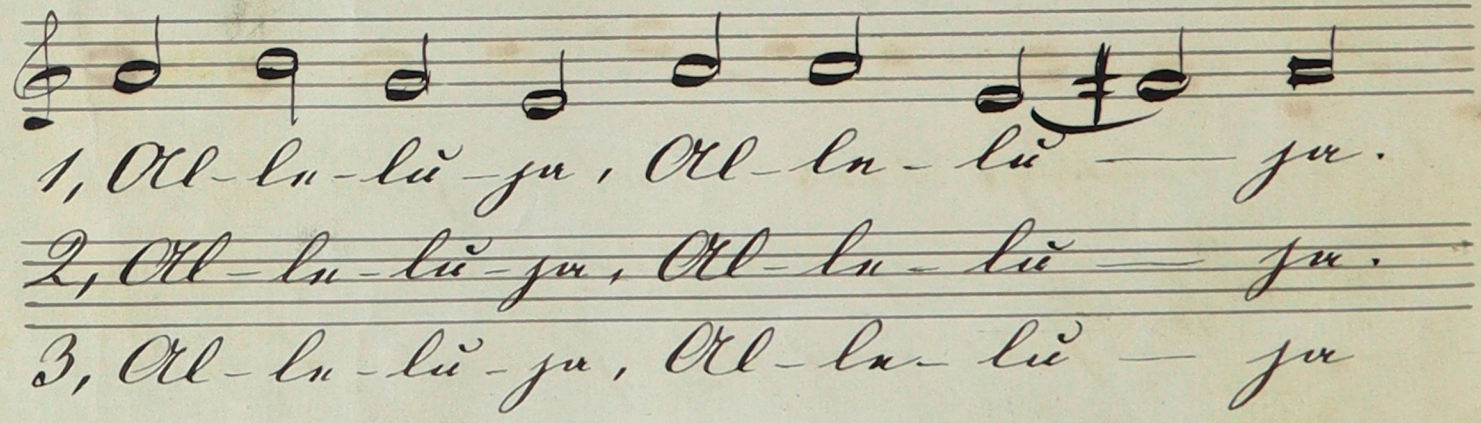 1, Al-le-lu-ja, Al-le-lu — ja.
2, Al-le-lu-ja, Al-le-lu — ja.
3, Al-le-lu-ja, Al-le-lu — ja